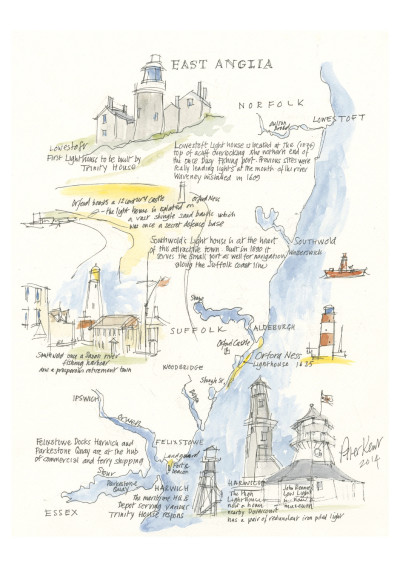 EAST ANGLIA
NORFOLK
LOWESTOFT
Lowestoft
First Lighthouse to be built by
Trinity House
Lowestoft Light house is located at the
top of cliff overlooking the northern end of
the once busy fishing port. Previous sites were
leading lights at the mouth of the river
Waveney installed in 1609
Orford boasts a 12 century castle
Orford Ness
- the light house is isolated on
a vast shingle sand basin which
was once a secret defence base
Southwold's Light house is at the heart
of this attractive town. Built in 1890 it
serves the small port as well for navigation
along the Suffolk coast line
SOUTHWOLD
Walberswick
Snape
SUFFOLK
ALDEBURGH
Orford Castle
Orford Ness
Lighthouse
Southwold once a
fishing harbour
now a prosperous retirement town
WOODBRIDGE
IPSWICH
Orwell
Felixstowe Docks Harwich and
Parkestone Quay are at the hub
of commercial and ferry shipping
FELIXSTOWE
Landguard
Fort &
Stour
Parkestone
Quay
HARWICH
The maritime H.Q &
Depot serving various
Trinity House regions
ESSEX
HARWICH
The High
Lighthouse
now a home
nearby Dovercourt
has a pair of redundant iron piled light
John Rennie
Low Light
is now a
museum
Peter Kent
2014